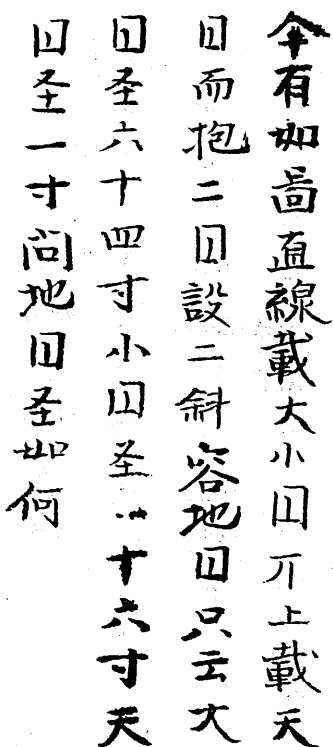 今有如啚直線載大小円丌上載天
円而抱二円設二斜容地円只云大
円圣六十四寸小円圣三十六寸天
円圣一寸問地円圣如何